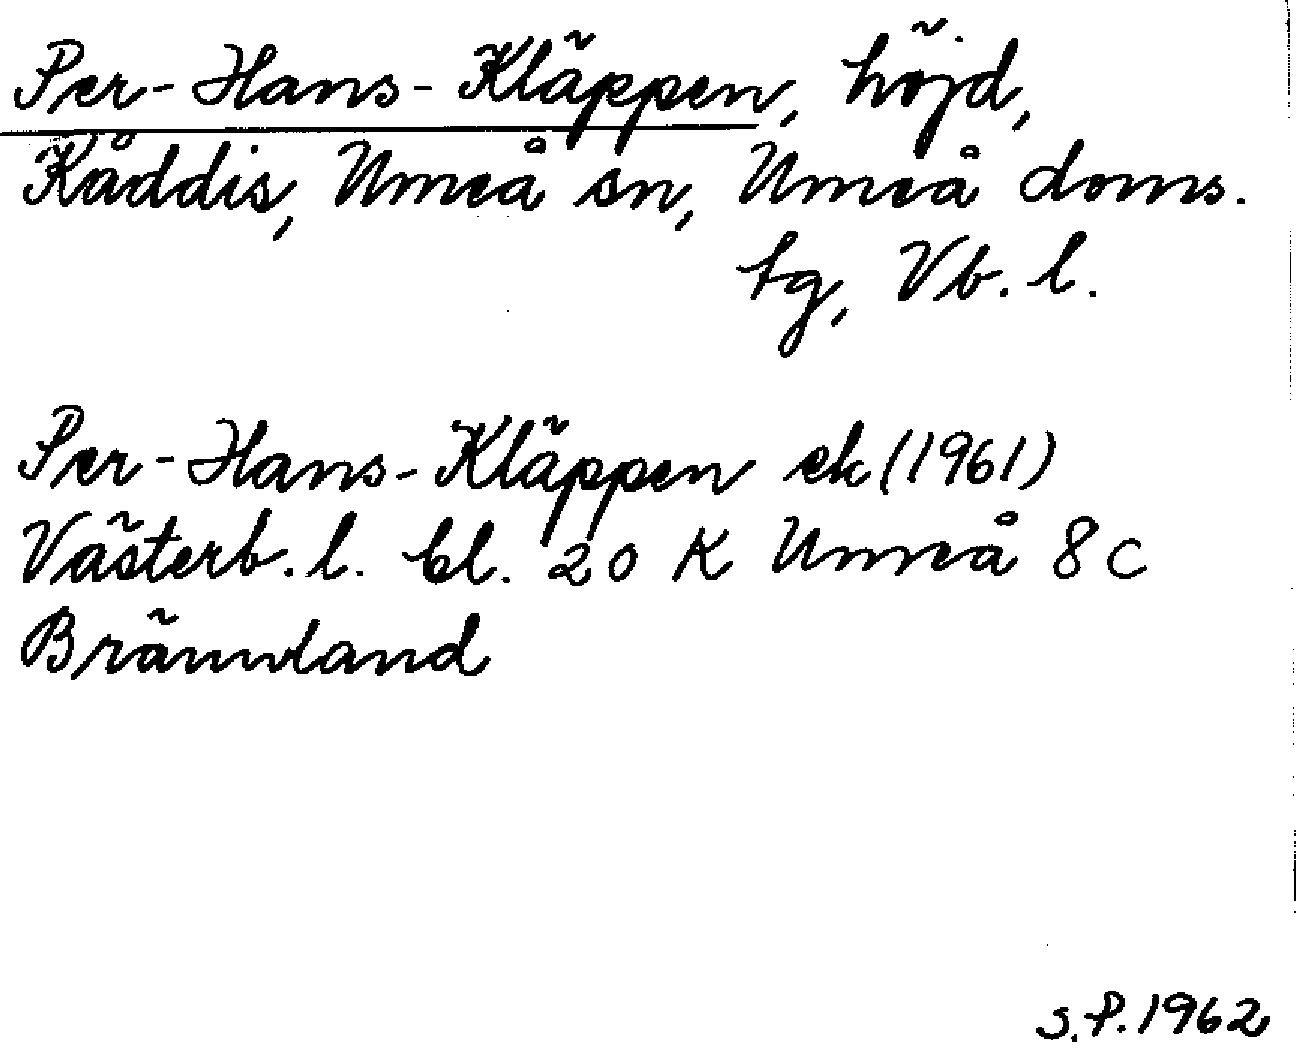 Per-Hans-Kläppen, höjd,
Kåddis, Umeå sn, Umeå doms.
tg, Vb. l.
Per-Hans-Kläppen ek (1961)
Västerb. l. bl. 20 K Umeå 8 c
Brännland
S.P. 1962